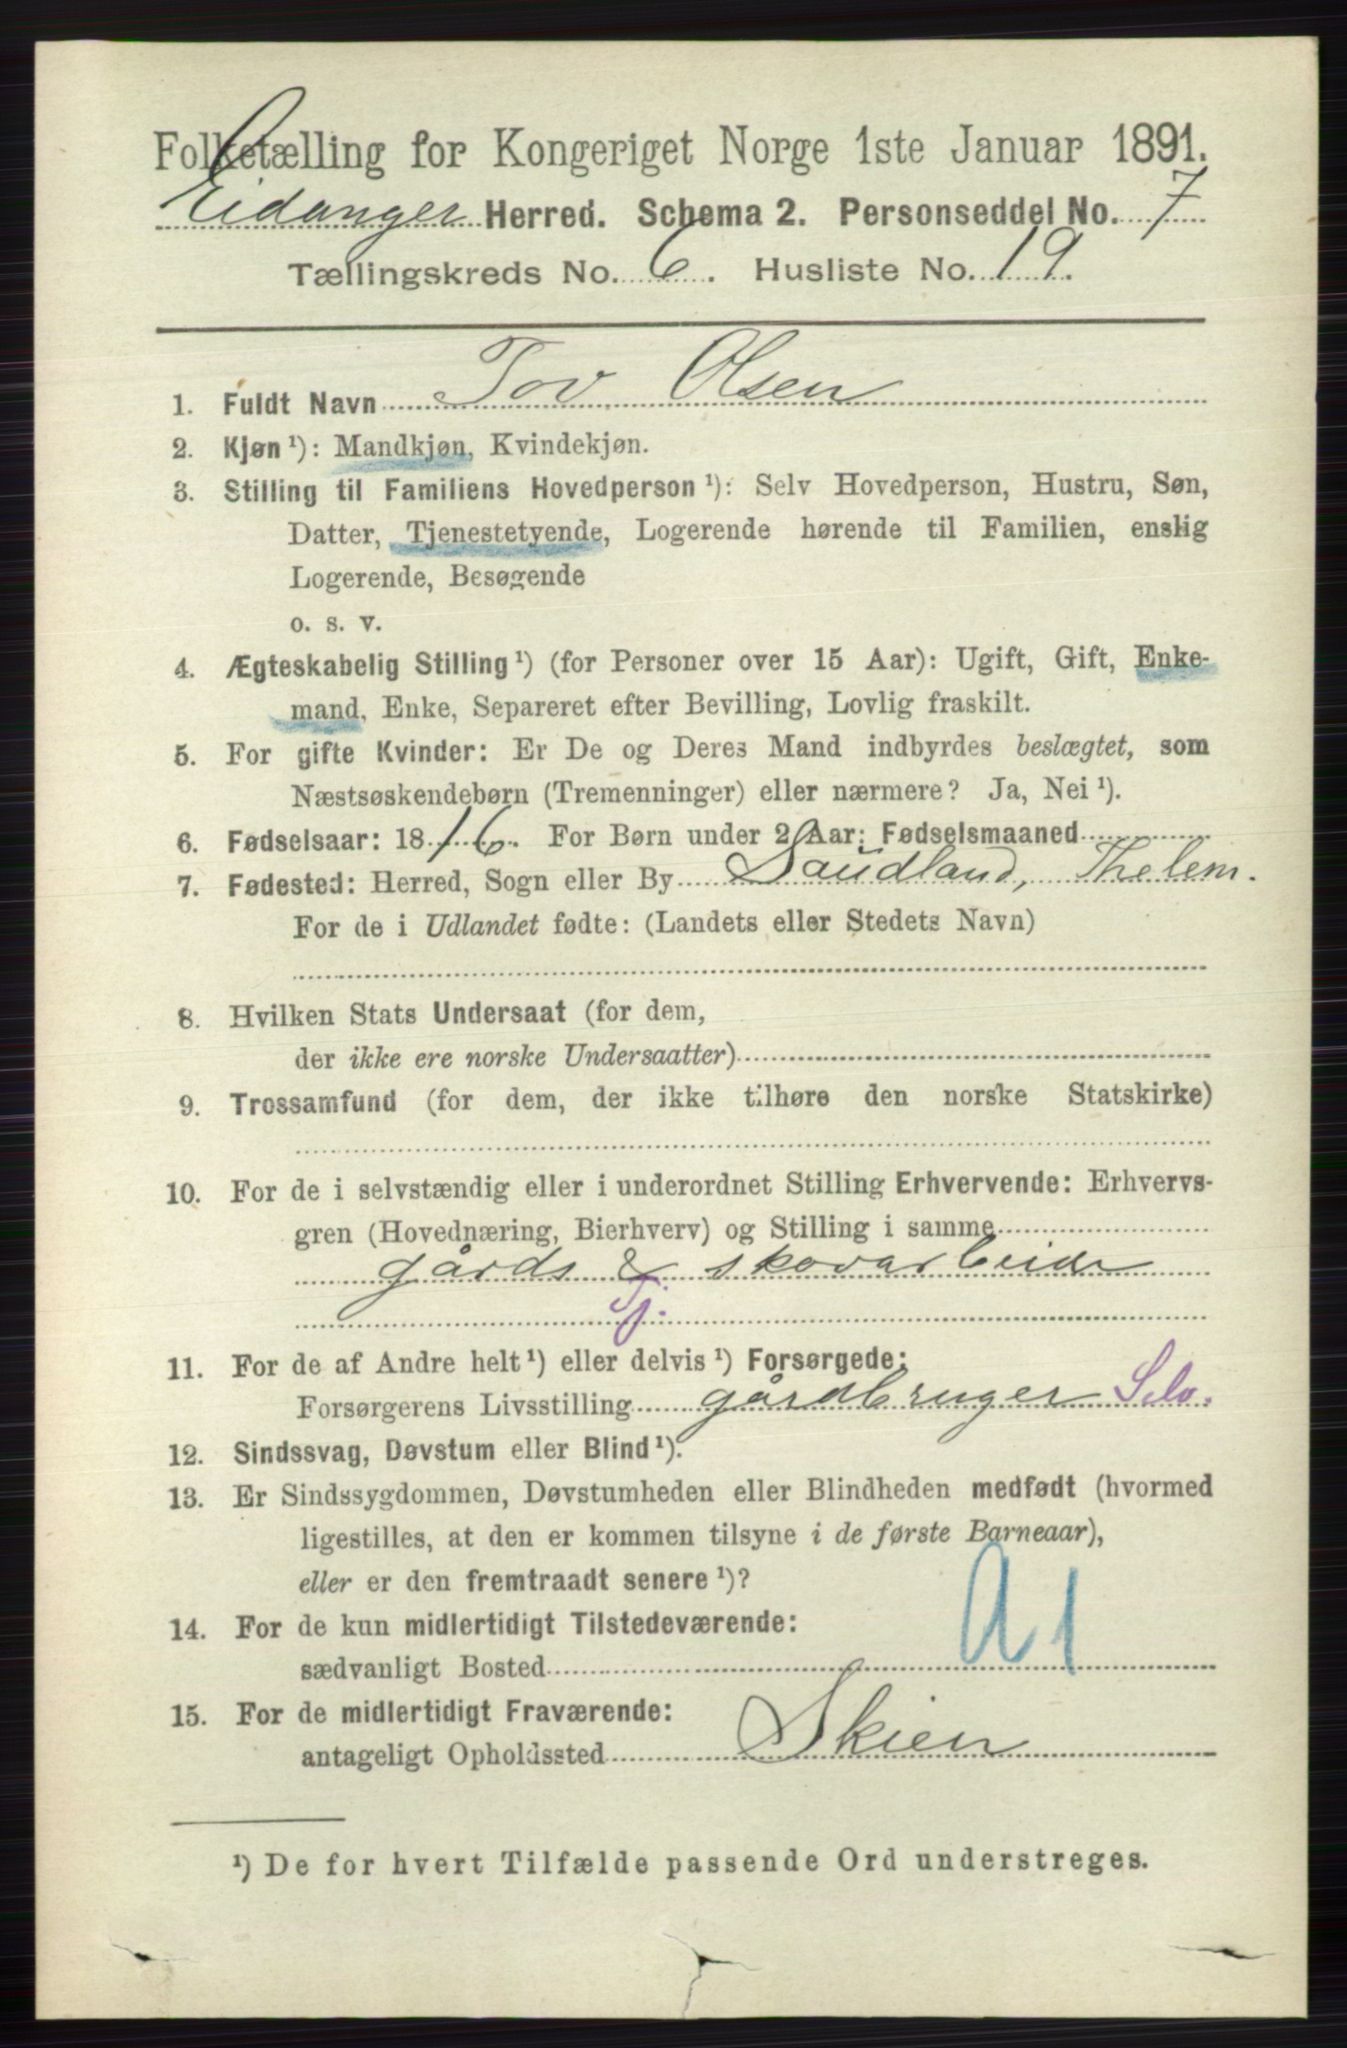 Folketælling for Kongeriget Norge 1ste Januar 1891.
Eidanger Herred. Schema 2. Personseddel No. 7
Tællingskreds No. 6. Husliste No. 19.
1. Fuldt Navn Tov Olsen
2. Kjøn ¹): Mandkjøn, Kvindekjøn.
3. Stilling til Familiens Hovedperson ¹): Selv Hovedperson, Hustru, Søn,
Datter, Tjenestetyende, Logerende hørende til Familien, enslig
Logerende, Besøgende
o. s. v.
4. Ægteskabelig Stilling ¹) (for Personer over 15 Aar): Ugift, Gift, Enke-
mand, Enke, Separeret efter Bevilling, Lovlig fraskilt.
5. For gifte Kvinder: Er De og Deres Mand indbyrdes beslægtet, som
Næstsøskendebørn (Tremenninger) eller nærmere? Ja, Nei ¹).
6. Fødselsaar: 1816. For Børn under 2 Aar: Fødselsmaaned
7. Fødested: Herred, Sogn eller By Saudland, Thelem.
For de i Udlandet fødte: (Landets eller Stedets Navn)
8. Hvilken Stats Undersaat (for dem,
der ikke ere norske Undersaatter)
9. Trossamfund (for dem, der ikke tilhøre den norske Statskirke)
10. For de i selvstændig eller i underordnet Stilling Erhvervende: Erhvervs-
gren (Hovednæring, Bierhverv) og Stilling i samme
gårds & skovarbeide
Tj.
11. For de af Andre helt ¹) eller delvis ¹) Forsørgede:
Forsørgerens Livsstilling gårdbruger Selv.
12. Sindssvag, Døvstum eller Blind ¹).
13. Er Sindssygdommen, Døvstumheden eller Blindheden medfødt (hvormed
ligestilles, at den er kommen tilsyne i de første Barneaar),
eller er den fremtraadt senere ¹)?
14. For de kun midlertidigt Tilstedeværende:
sædvanligt Bosted
A1
15. For de midlertidigt Fraværende:
antageligt Opholdssted Skien
¹) De for hvert Tilfælde passende Ord understreges.